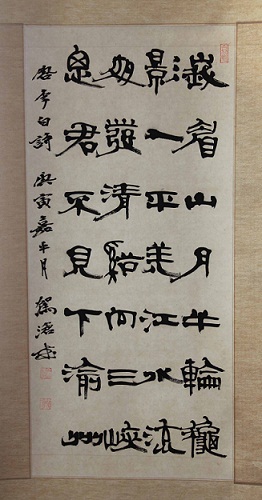 峨眉山月半輪龝
影入平羌江水流
夜發清谿向三峽
思君不見下渝州
李白詩 庚寅嘉平月